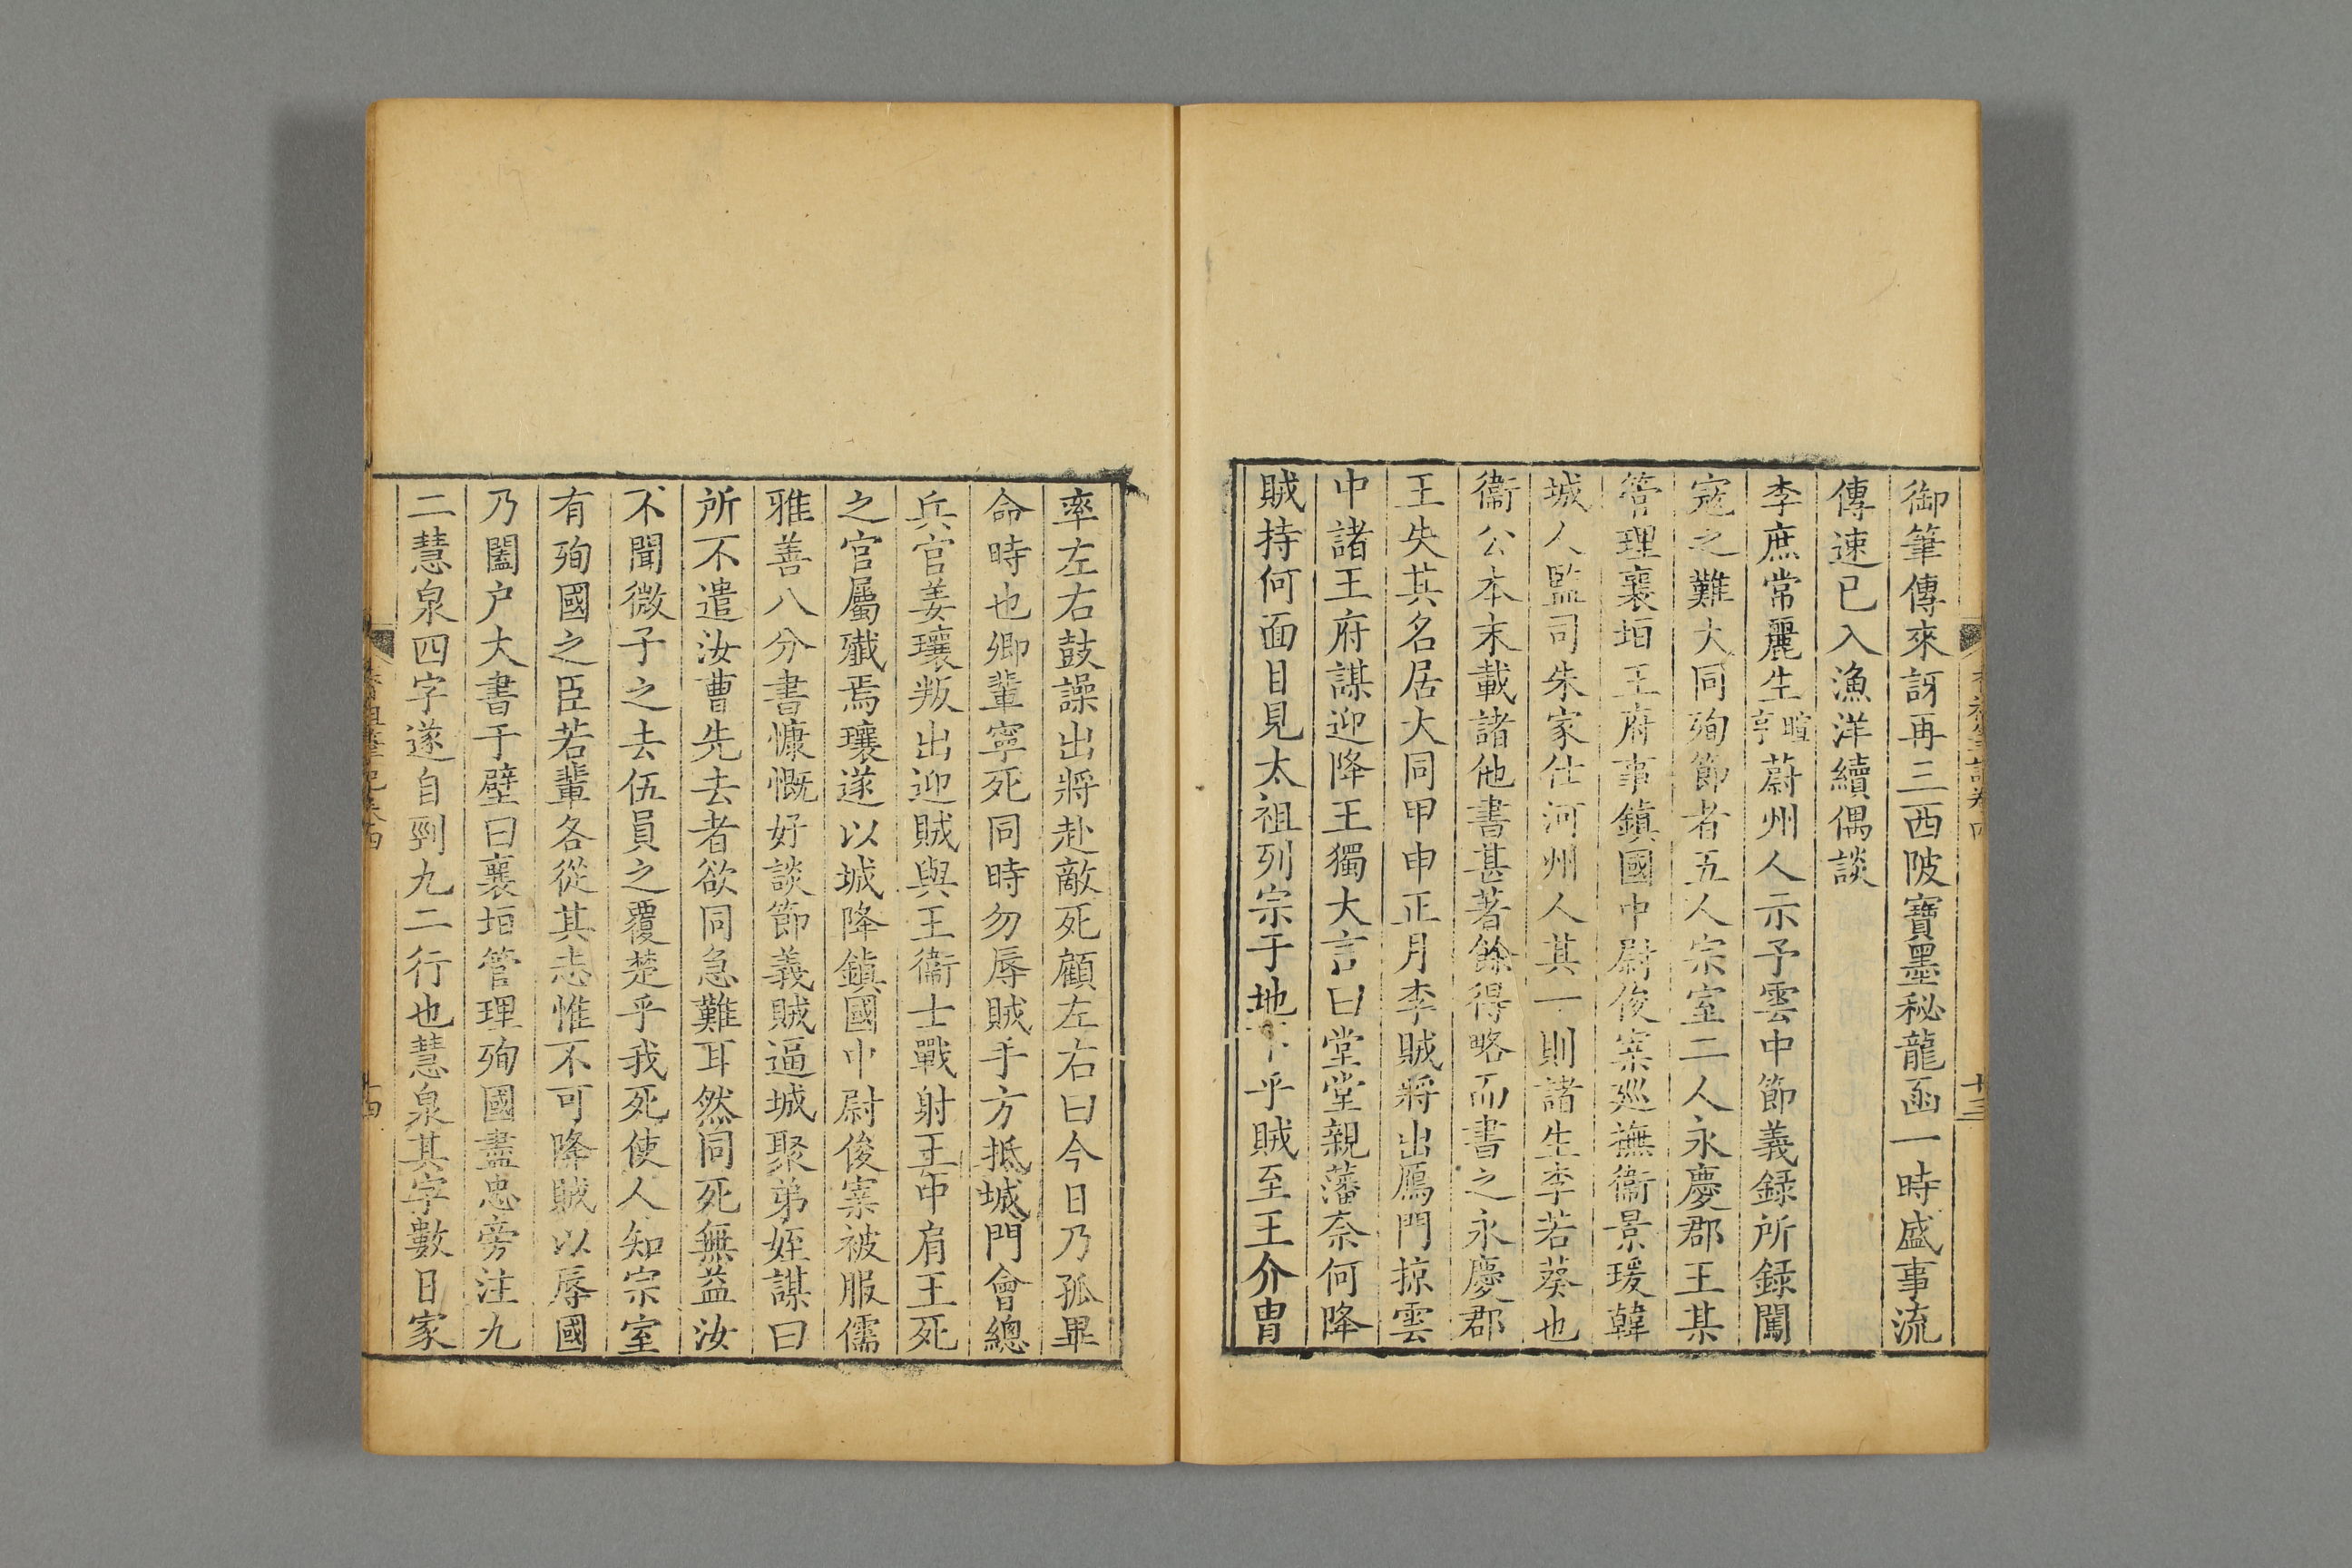 御筆傳來訝再三西陂寶墨秘龍函一時盛事流
傳速已入漁洋續偶談
李庶常麗生暄亨蔚州人示予雲中節義録所録闖
寇之難大同殉節者五人宗室二人永慶郡王某
管理襄垣王府事鎮國中尉俊寀廵撫衞景瑗韓
城人監司朱家仕河州人其一則諸生李若葵也
衞公本末載諸他書甚著餘得略而書之永慶郡
王失其名居大同甲申正月李賊將出鴈門掠雲
中諸王府謀迎降王獨大言曰堂堂親藩奈何降
賊持何面目見太祖列宗于地下乎賊至王介冑
率左右鼓譟出將赴敵死顧左右曰今日乃孤畢
命時也卿輩寧死同時勿辱賊手方抵城門會總
兵官姜瓖叛出迎賊與王衞士戰射王中肩王死
之官屬殱焉瓖遂以城降鎮國中尉俊寀被服儒
雅善八分書慷慨好談節義賊逼城聚弟姪謀曰
所不遣汝曹先去者欲同急難耳然同死無益汝
不聞微子之去伍員之覆楚乎我死使人知宗室
有殉國之臣若輩各從其志惟不可降賊以辱國
乃闔户大書于壁曰襄垣管理殉國盡忠旁注九
二慧泉四字遂自剄九二行也慧泉其字數日家